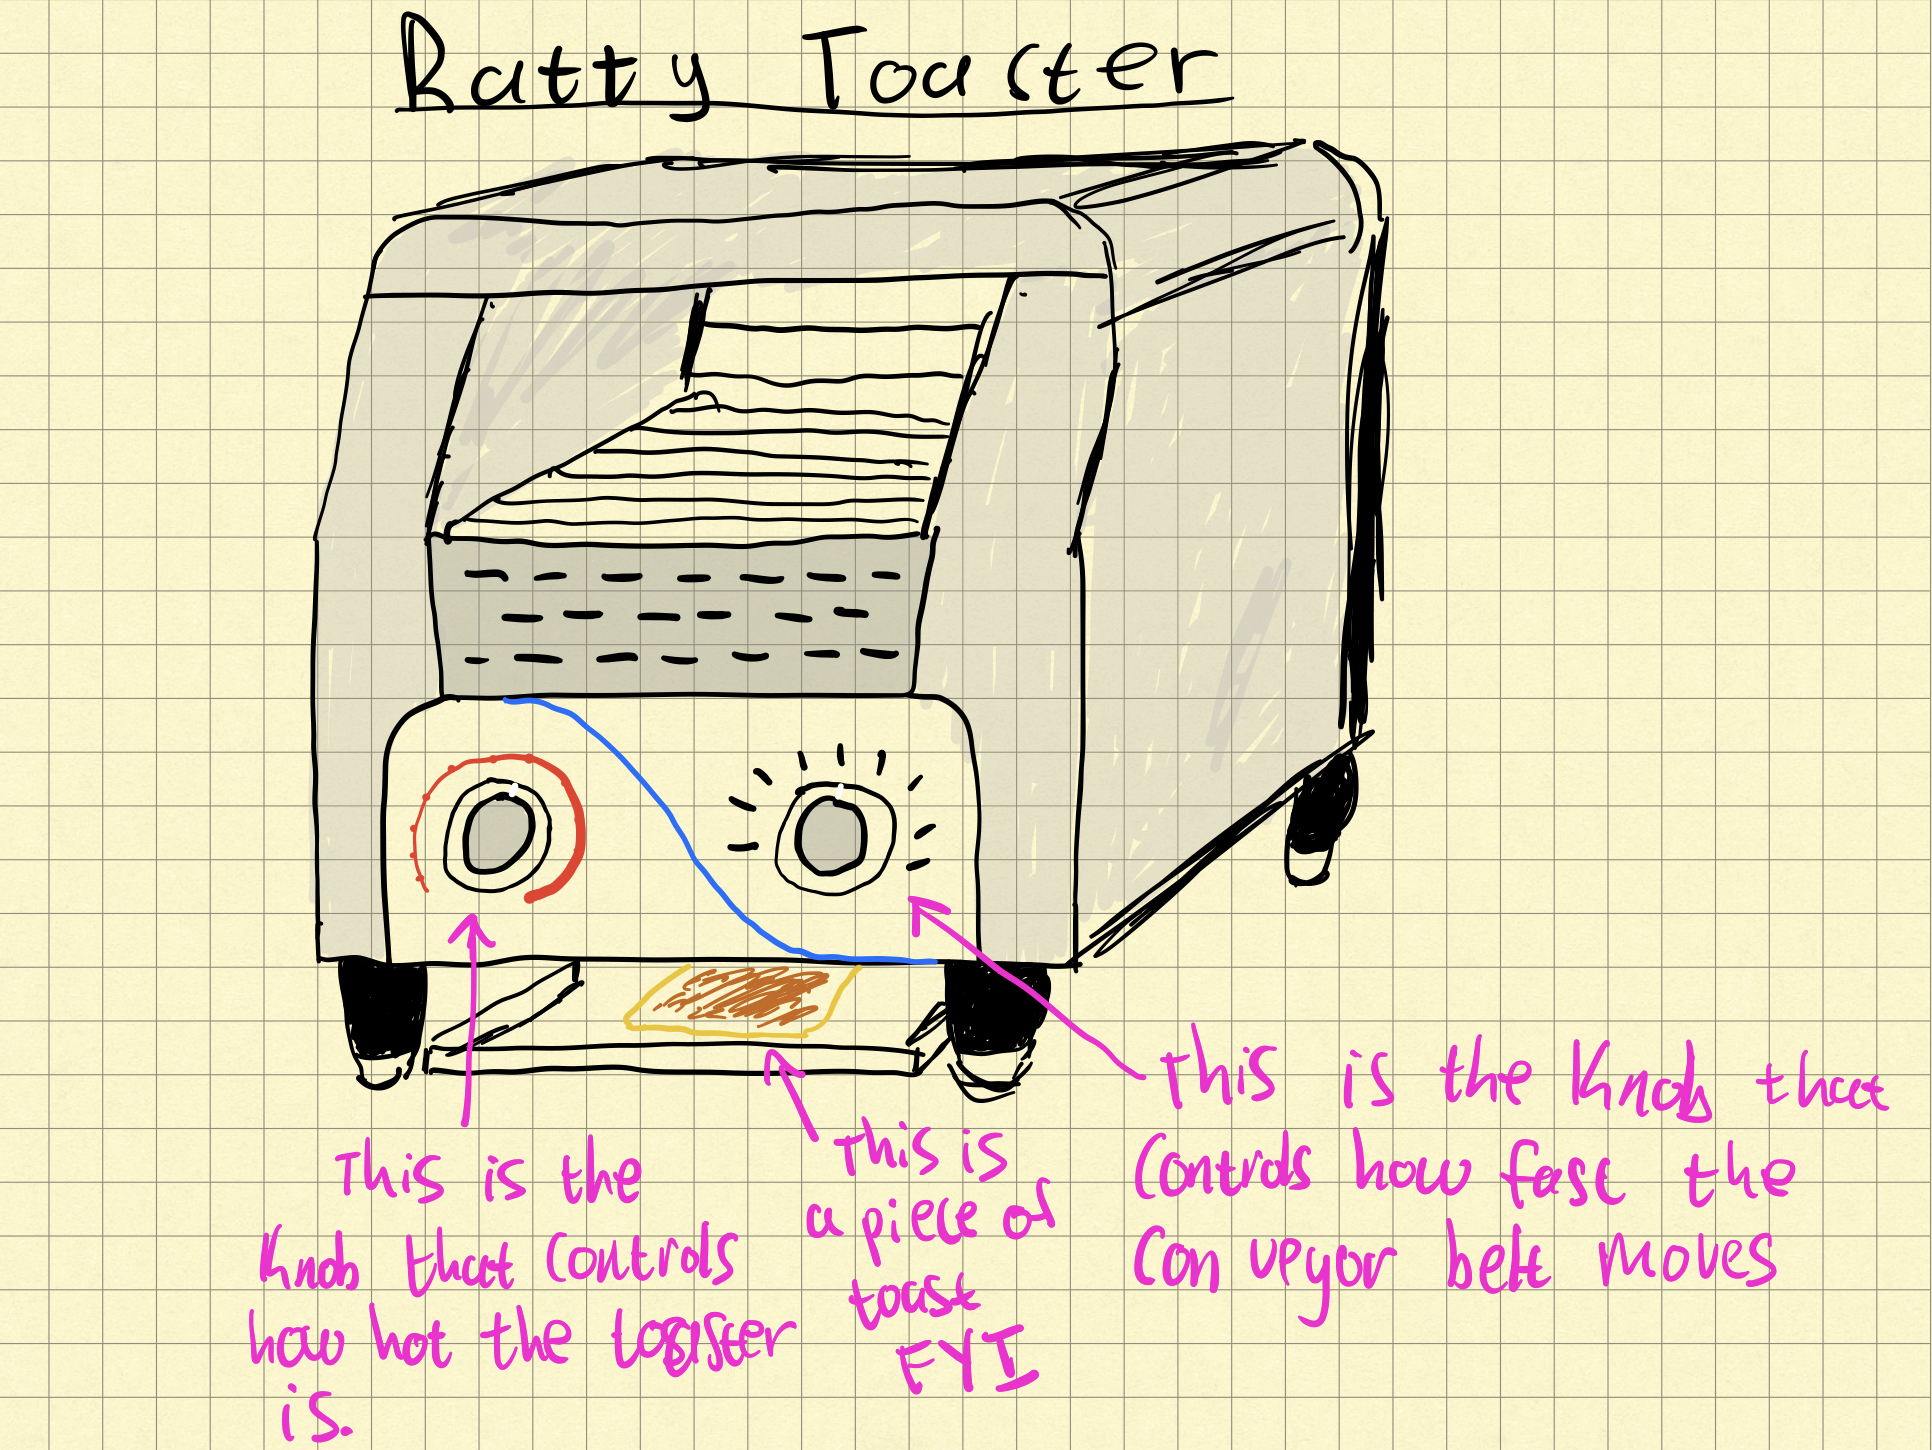 Ratty Toaster
This is the
knob that controls
how hot the toaster
is.
This is
a piece of
toast
FYI
This is the knob that
Controls how fast the
Conveyor belt moves